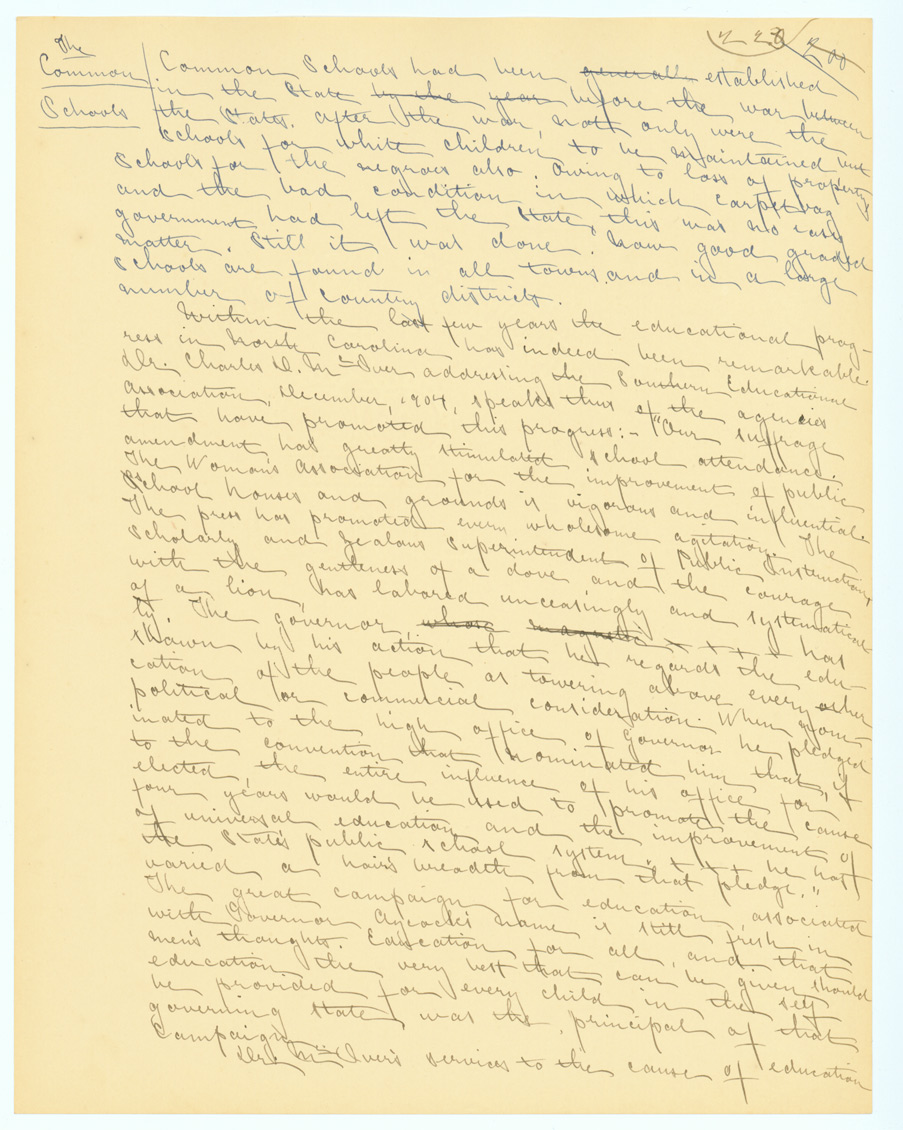 The
Common
Schools
Common Schools had been generall established
in the State by the year before the war between
the States. After the war, not only were the
schools for white children to be maintained but
schools for the negroes also. Owing to loss of property
and the bad condition in which carpet bag
government had left the State, this was no easy
matter. Still it was done. Now good graded
schools are found in all towns and in a large
number of country districts.
Within the last few years the educational prog-
ress in North Carolina has indeed been remarkable.
Dr. Charles D. McIver addressing the Southern Educational
Association, December, 1904, speaks thus of the agencies
that have promoted this progress:- "Our suffrage
amendment has greatly stimulated school attendance.
The Woman's Association for the improvement of public
School houses and grounds is vigorous and influential.
The press has promoted every wholesome agitation. The
scholarly and zealous Superintendent of Public Instruction,
with the gentleness of a dove and the courage
of a lion, has labored unceasingly and systematical-
ly. The governor, whose magnetic x x x x x has
shown by his action that he regards the edu-
cation of the people as towering above every other
political or commercial consideration. When nom-
inated to the high office of Governor he pledged
to the convention that nominated him that, if
elected, the entire influence of his office for
four years would be used to promote the cause
of universal education and the improvement of
the State's public school system. x x x he has
varied a hair's breadth from that pledge."
The great campaign for education, associated
with Governor Aycock's name is still fresh in
men's thoughts. Education for all, and that
education the very best that can be given should
be provided for every child in the self
governing state, was the principal of that
Campaign.
Dr. McIver's services to the cause of education